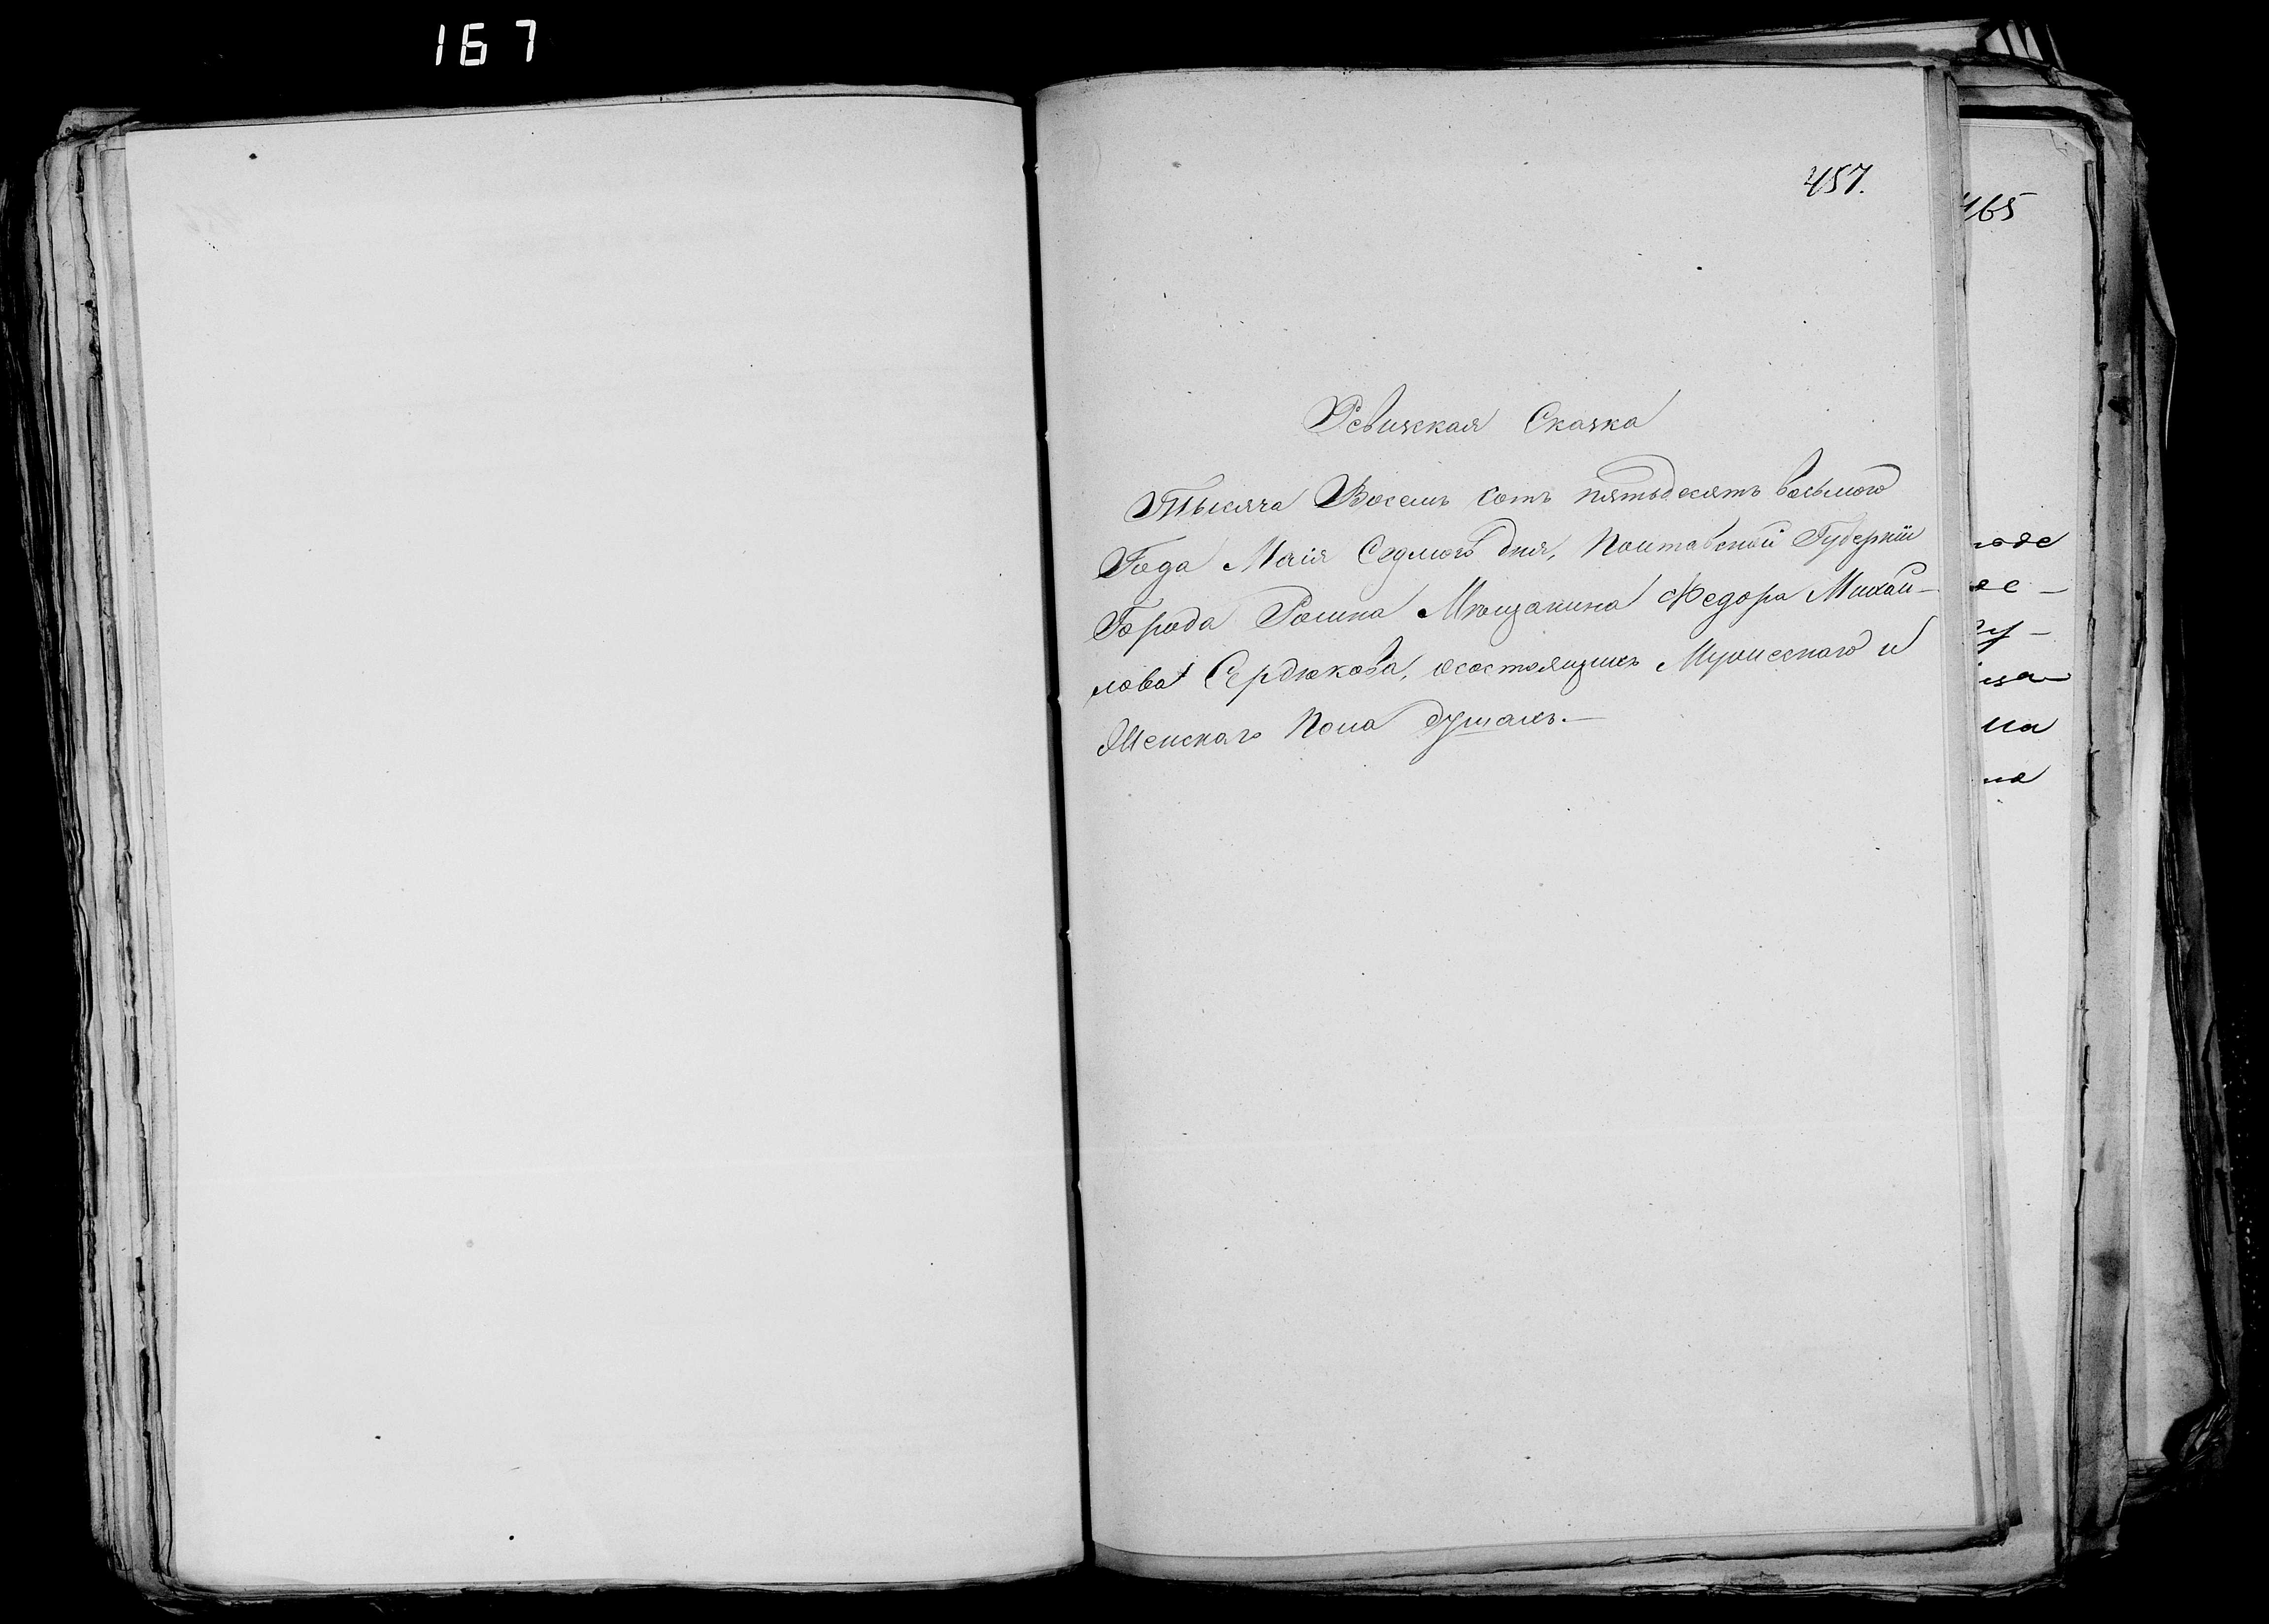 167
457.
465
Ревизская Сказка
Тысяча Восемь сотъ пятьдесятъ восьмого
Года Маія Седмого дня, Полтавской Губерніи
Города Ромна Мѣщанина Федора Михай-
лова Сердюкова, осостоящихъ Мужескаго и
Женскаго Пола душахъ.—